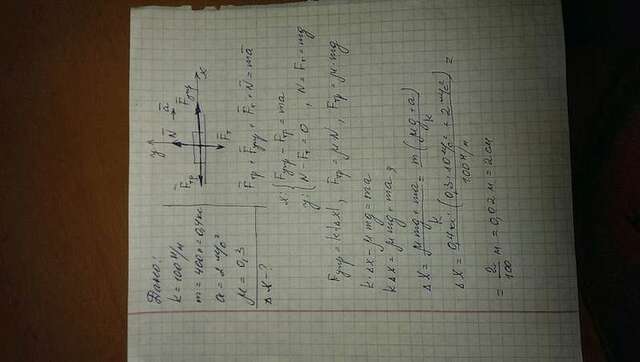 Дано:
k = 100 Н/м
m = 400 г = 0,4 кг
a = 2 м/с²
μ = 0,3
Δx - ?
y
N
a
Fтр
Fупр
x
Fт
Fтр + Fупр + Fт + N = ma
x: { Fупр - Fтр = ma
y: { N - Fт = 0, N = Fт = mg
Fупр = |kΔx|, Fтр = μN, Fтр = μ·mg
k·Δx - μmg = ma
kΔx = μmg + ma,
Δx = μmg + ma / k = m(μg + a) / k
Δx = 0,4 кг · (0,3 · 10 м/с² + 2 м/с²) / 100 Н/м =
= 2/100 м = 0,02 м = 2 см